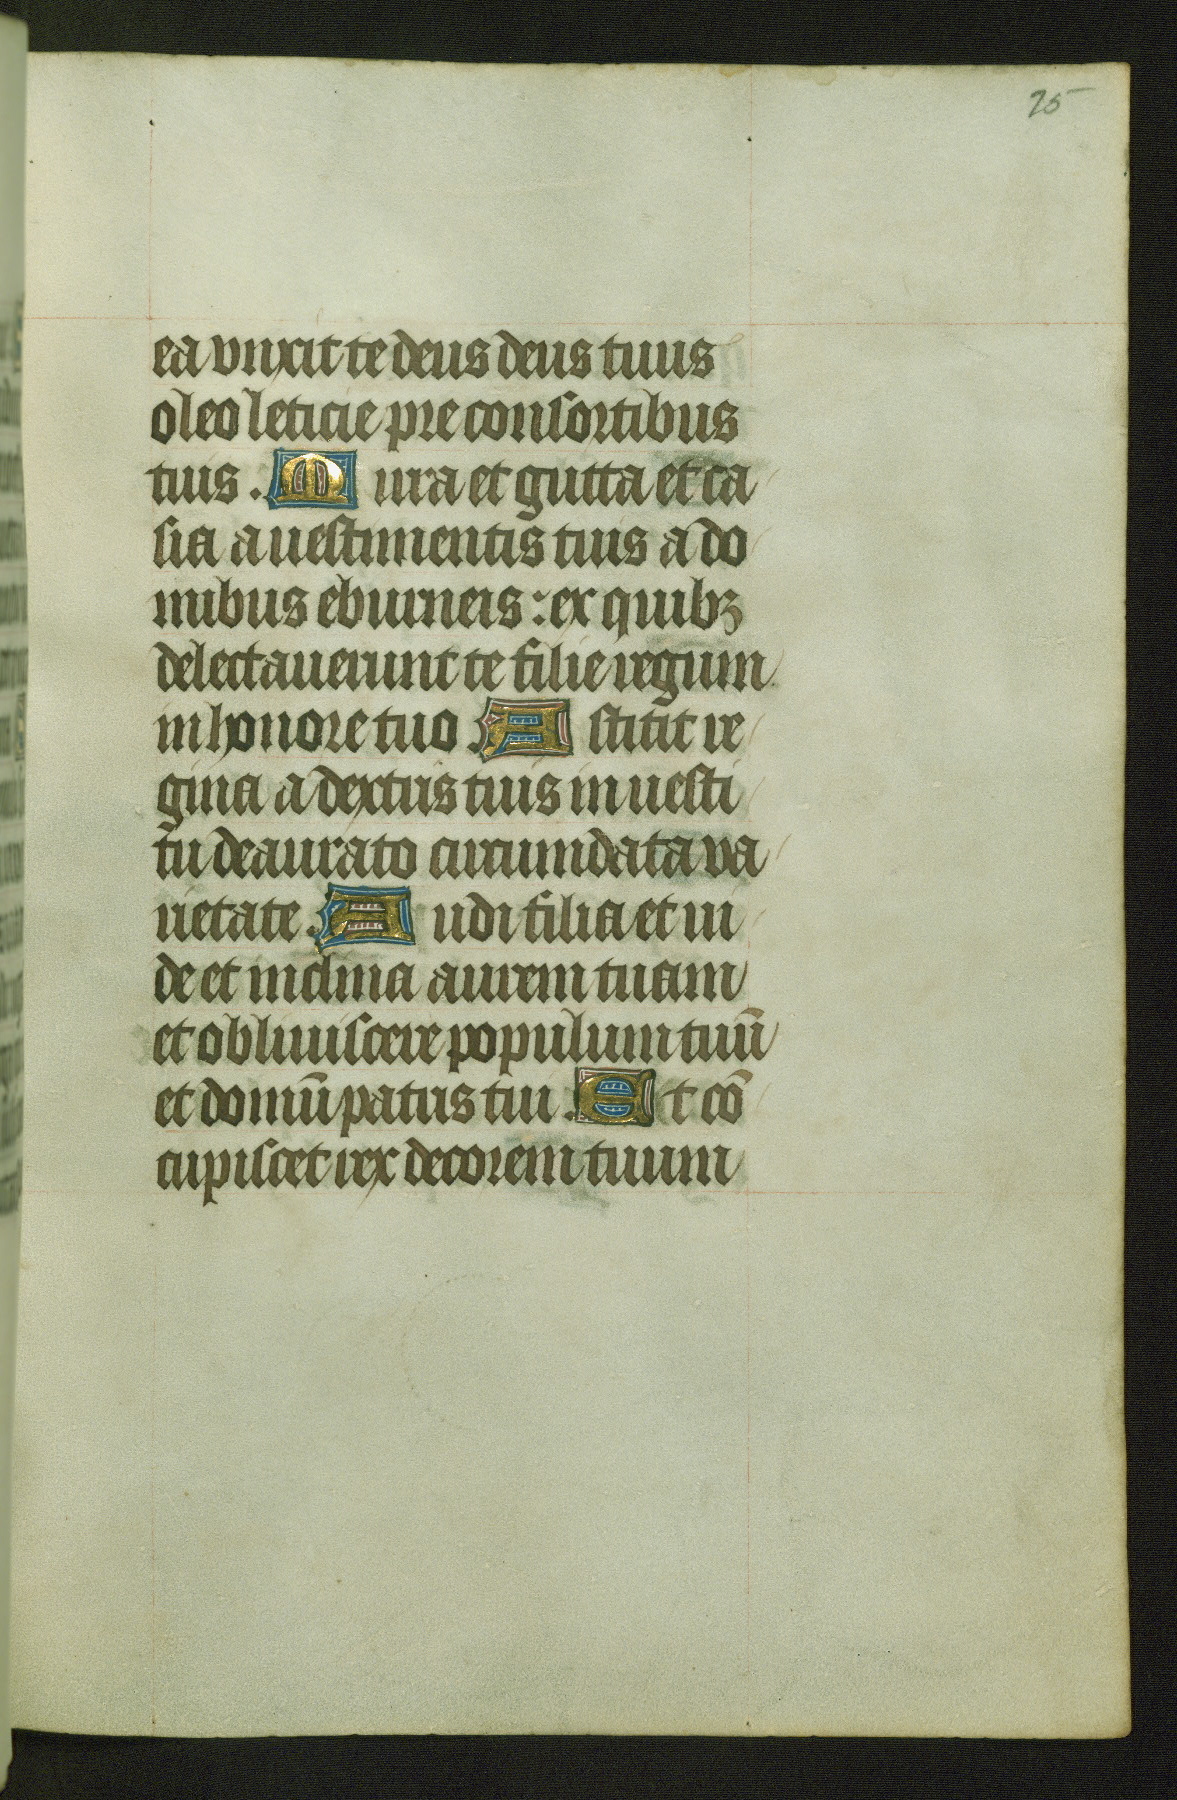 75
ea vnxit te deus deus tuus
oleo leticie pre consortibus
tuis . Mirra et gutta et ca
sia a uestimentis tuis a do
mibus eburneis : ex quibꝫ
delectauerunt te filie regum
in honore tuo . Astitit re
gina a dextris tuis in uesti
tu deaurato circumdata va
rietate . Audi filia et ui
de et inclina aurem tuam
et obliuiscere populum tuū
et domū patris tui . Et cō
cupiscet rex decorem tuum